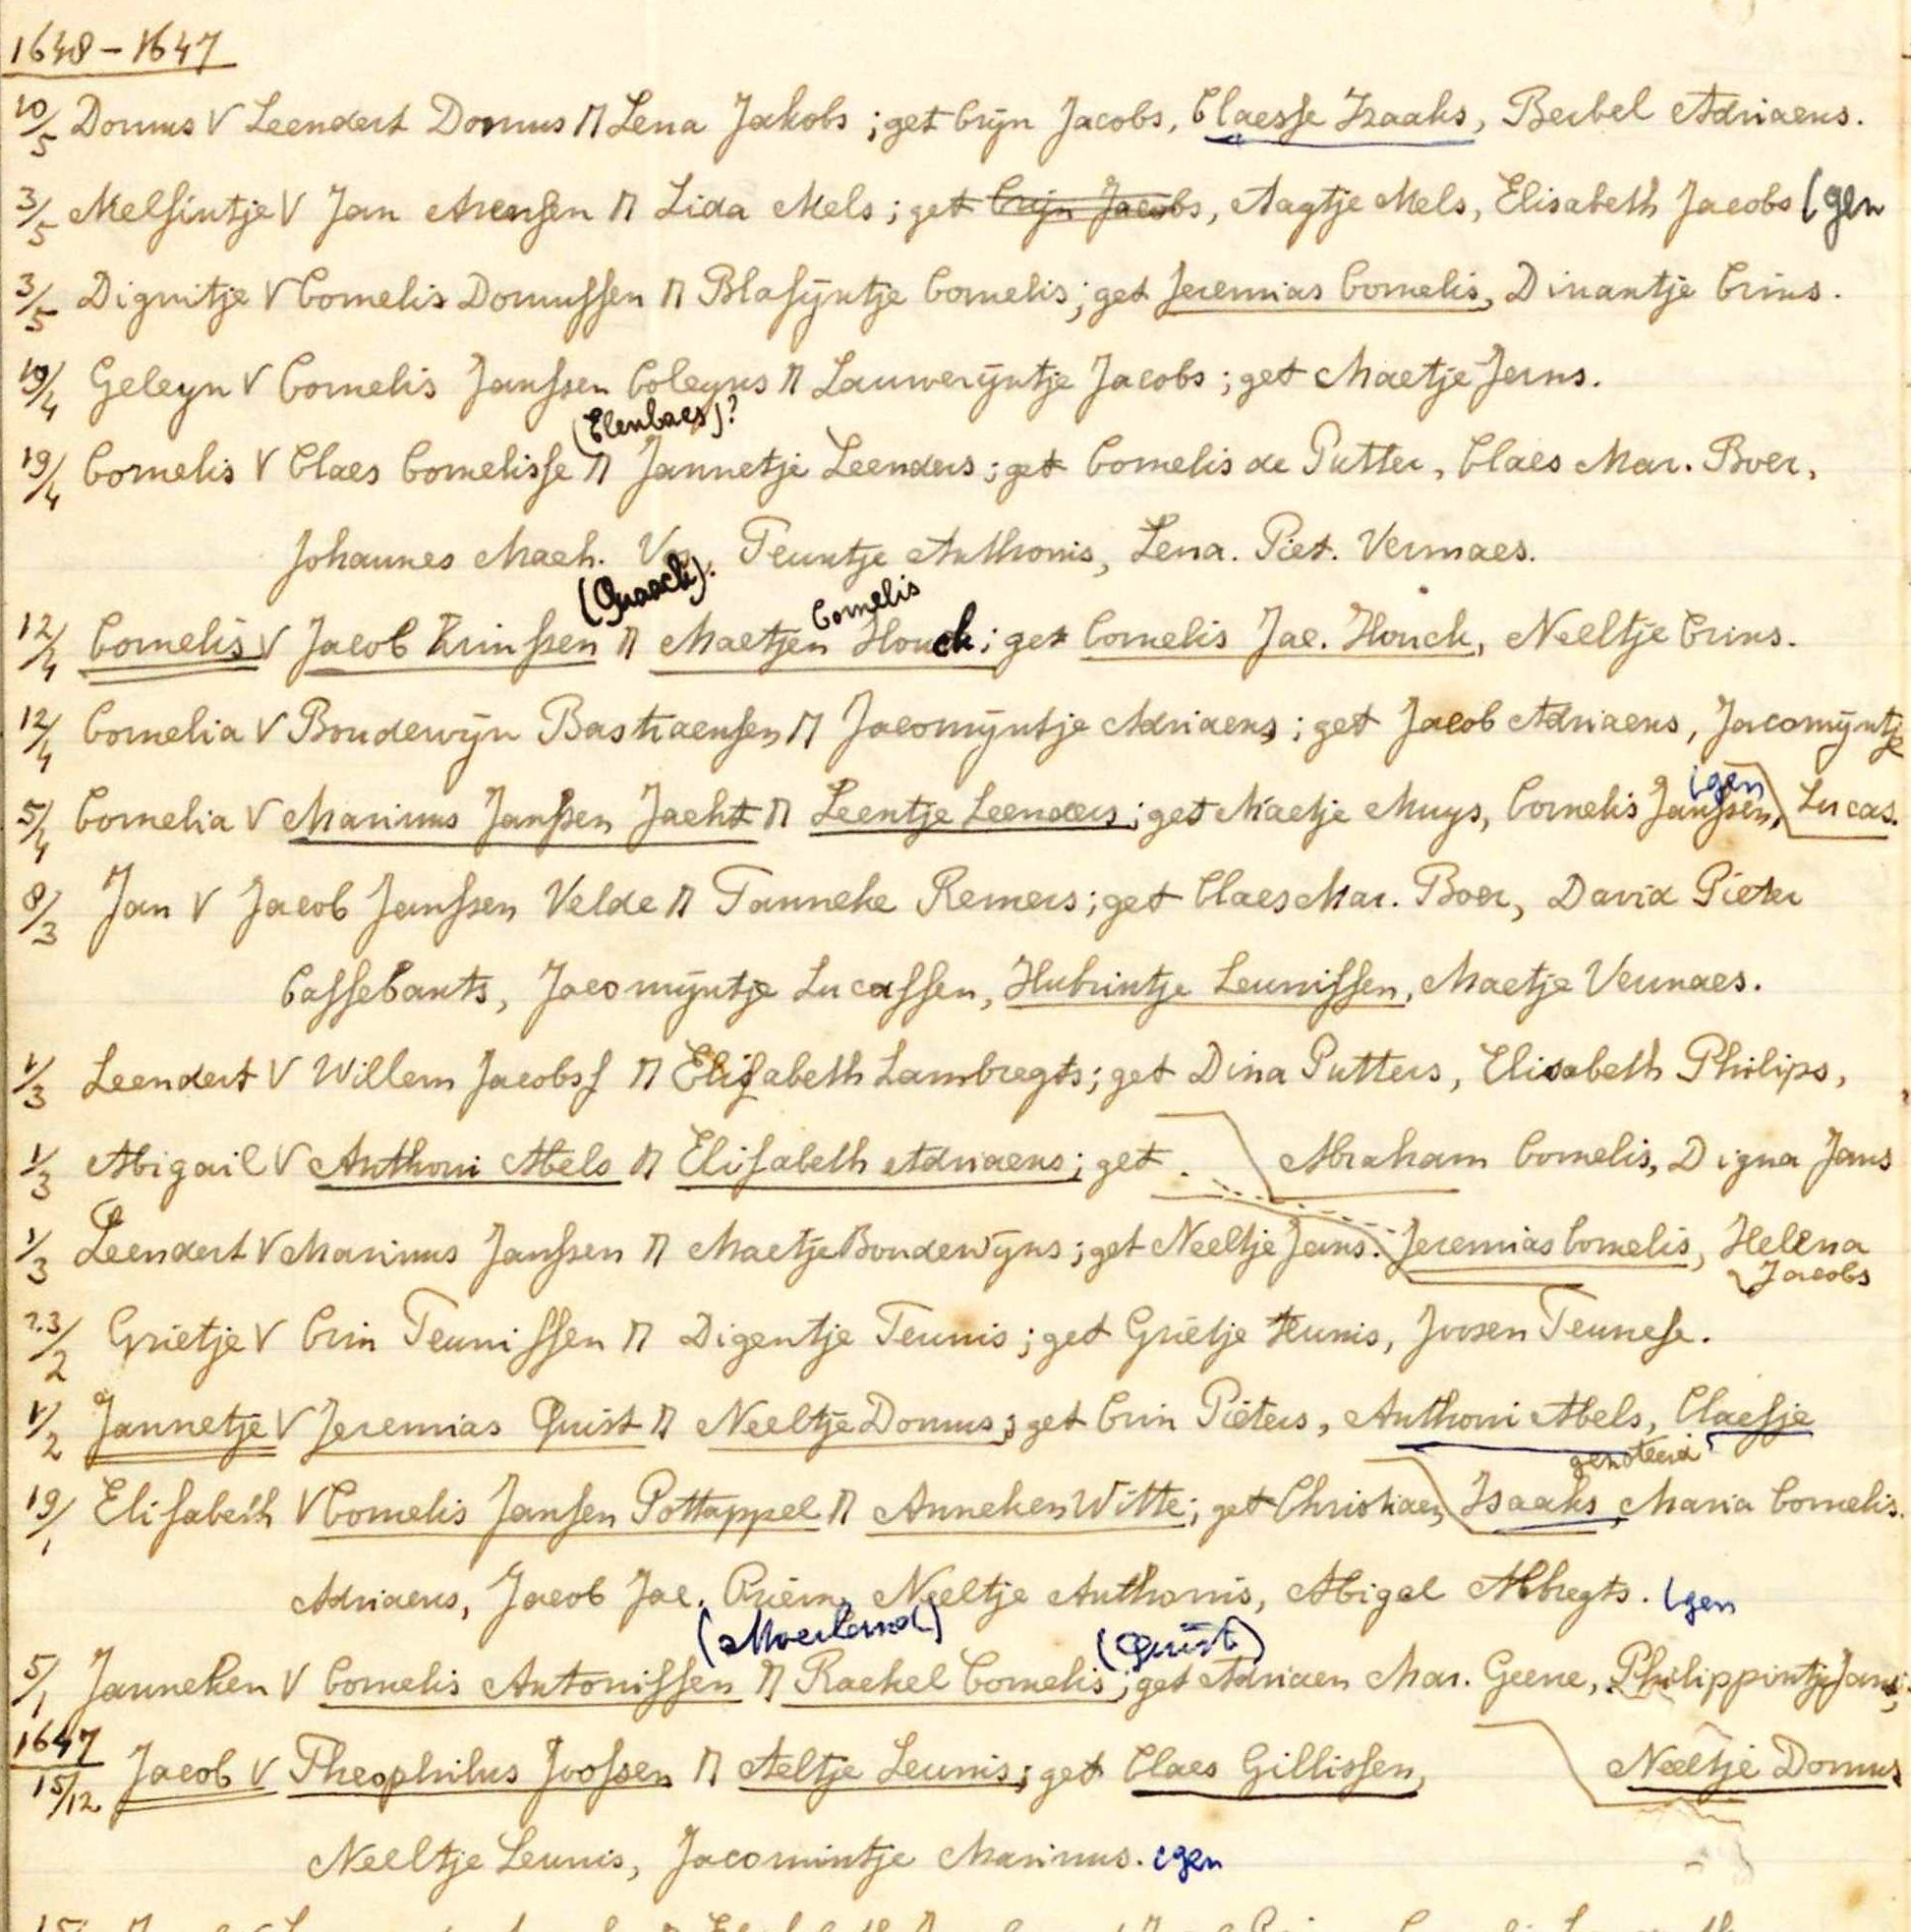 1648 – 1647
10/5 Domus V Leendert Domus M Lena Jakobs ; get Crijn Jacobs, Claesse Izaaks, Berbel Adriaens.
3/5 Melsintje V Jan Arensen M Lida Mels ; get Crijn Jacobs, Aagtje Mels, Elisabeth Jacobs (gen
3/5 Dignitje V Cornelis Domussen M Blasijntje Cornelis ; get Jeremias Cornelis, Dinantje Crins.
19/4 Geleyn V Cornelis Janssen Coleyns M Lauwerijntje Jacobs ; get Maetje Jerns.
(Elenbaes)?
19/4 Cornelis V Claes Cornelisse M Jannetje Leenders ; get Cornelis de Putter, Claes Mar. Boer,
Johannes Mach. Teuntje Anthonis, Lena. Piet. Vermaes.
(Quaack). Cornelis
12/4 Cornelis V Jacob Krinssen M Maetjen Houck ; get Cornelis Jac. Houck, Neeltje Crins.
12/4 Cornelia V Boudewijn Bastiaensen M Jacomijntje Adriaens ; get Jacob Adriaens, Jacomijntje
(gen
5/4 Cornelia V Marinus Janssen Jacht M Leentje Leenders ; get Maetje Muys, Cornelis Janssen, Lucas.
8/3 Jan V Jacob Janssen Velde M Tanneke Remers ; get Claes Mar. Boer, David Pieter
Cassebants, Jacomijntje Lucassen, Hubrintje Leunissen, Maetje Vermaes.
1/3 Leendert V Willem Jacobss M Elisabeth Lambregts ; get Dina Putters, Elisabeth Philips,
1/3 Abigail V Anthoni Abels M Elisabeth Adriaens ; get . Abraham Cornelis, Digna Jans
1/3 Leendert V Marinus Janssen M Maetje Boudewijns ; get Neeltje Jans. Jeremias Cornelis, Helena
Jacobs
23/2 Grietje V Crin Teunissen M Digentje Teunis ; get Grietje Teunis, Joosen Teunese.
1/2 Jannetje V Jeremias Quist M Neeltje Domus ; get Crin Pieters, Anthoni Abels, Claesje
genoteerd
19/1 Elisabeth V Cornelis Jansen Pottappel M Anneken Witte ; get Christiaen Isaaks, Maria Cornelis.
Adriaens, Jacob Jac. Priem, Neeltje Anthonis, Abigael Albregts. (gen
(Moerland) (Quist)
5/1 Janneken V Cornelis Antonissen M Rachel Cornelis ; get Adriaen Mar. Geene, Philippintje Jans ;
1647
15/12 Jacob V Theophilus Joossen M Aeltje Leunis ; get Claes Gillissen, Neeltje Domus
Neeltje Leunis, Jacomintje Marinus. (gen